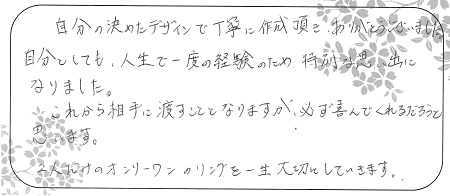 自分の決めたデザインで丁寧に作成頂き、ありがとうございました。
自分としても、人生で一度の経験のため特別な思い出に
なりました。
これから相手に渡すこととなりますが、必ず喜んでくれるだろうと
思います。
二人だけのオンリーワンのリングを一生大切にしていきます。